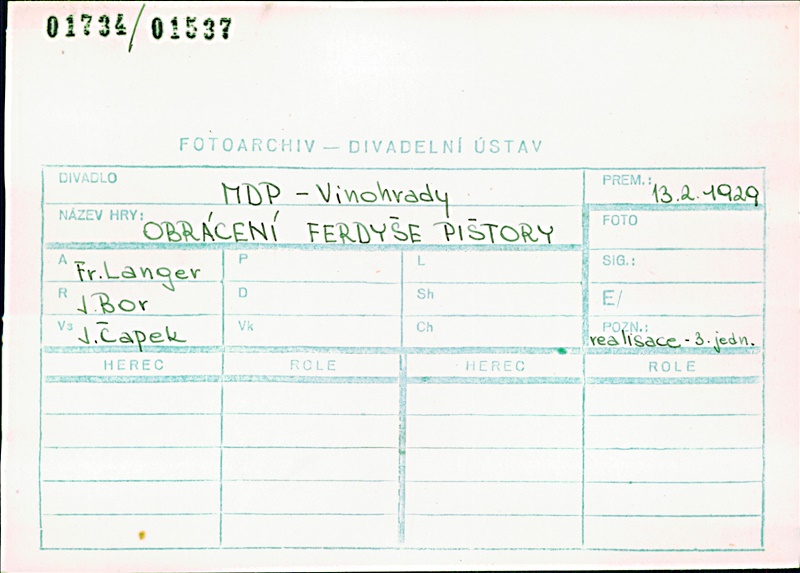 01734/01537
FOTOARCHIV — DIVADELNÍ ÚSTAV
DIVADLO MDP - Vinohrady PREM.: 13.2.1929
NÁZEV HRY: OBRÁCENÍ FERDYŠE PIŠTORY FOTO
A Fr. Langer P L SIG.:
R J. Bor D Sh E/
Vs J. Čapek Vk Ch POZN.: realisace - 3. jedn.
HEREC ROLE HEREC ROLE